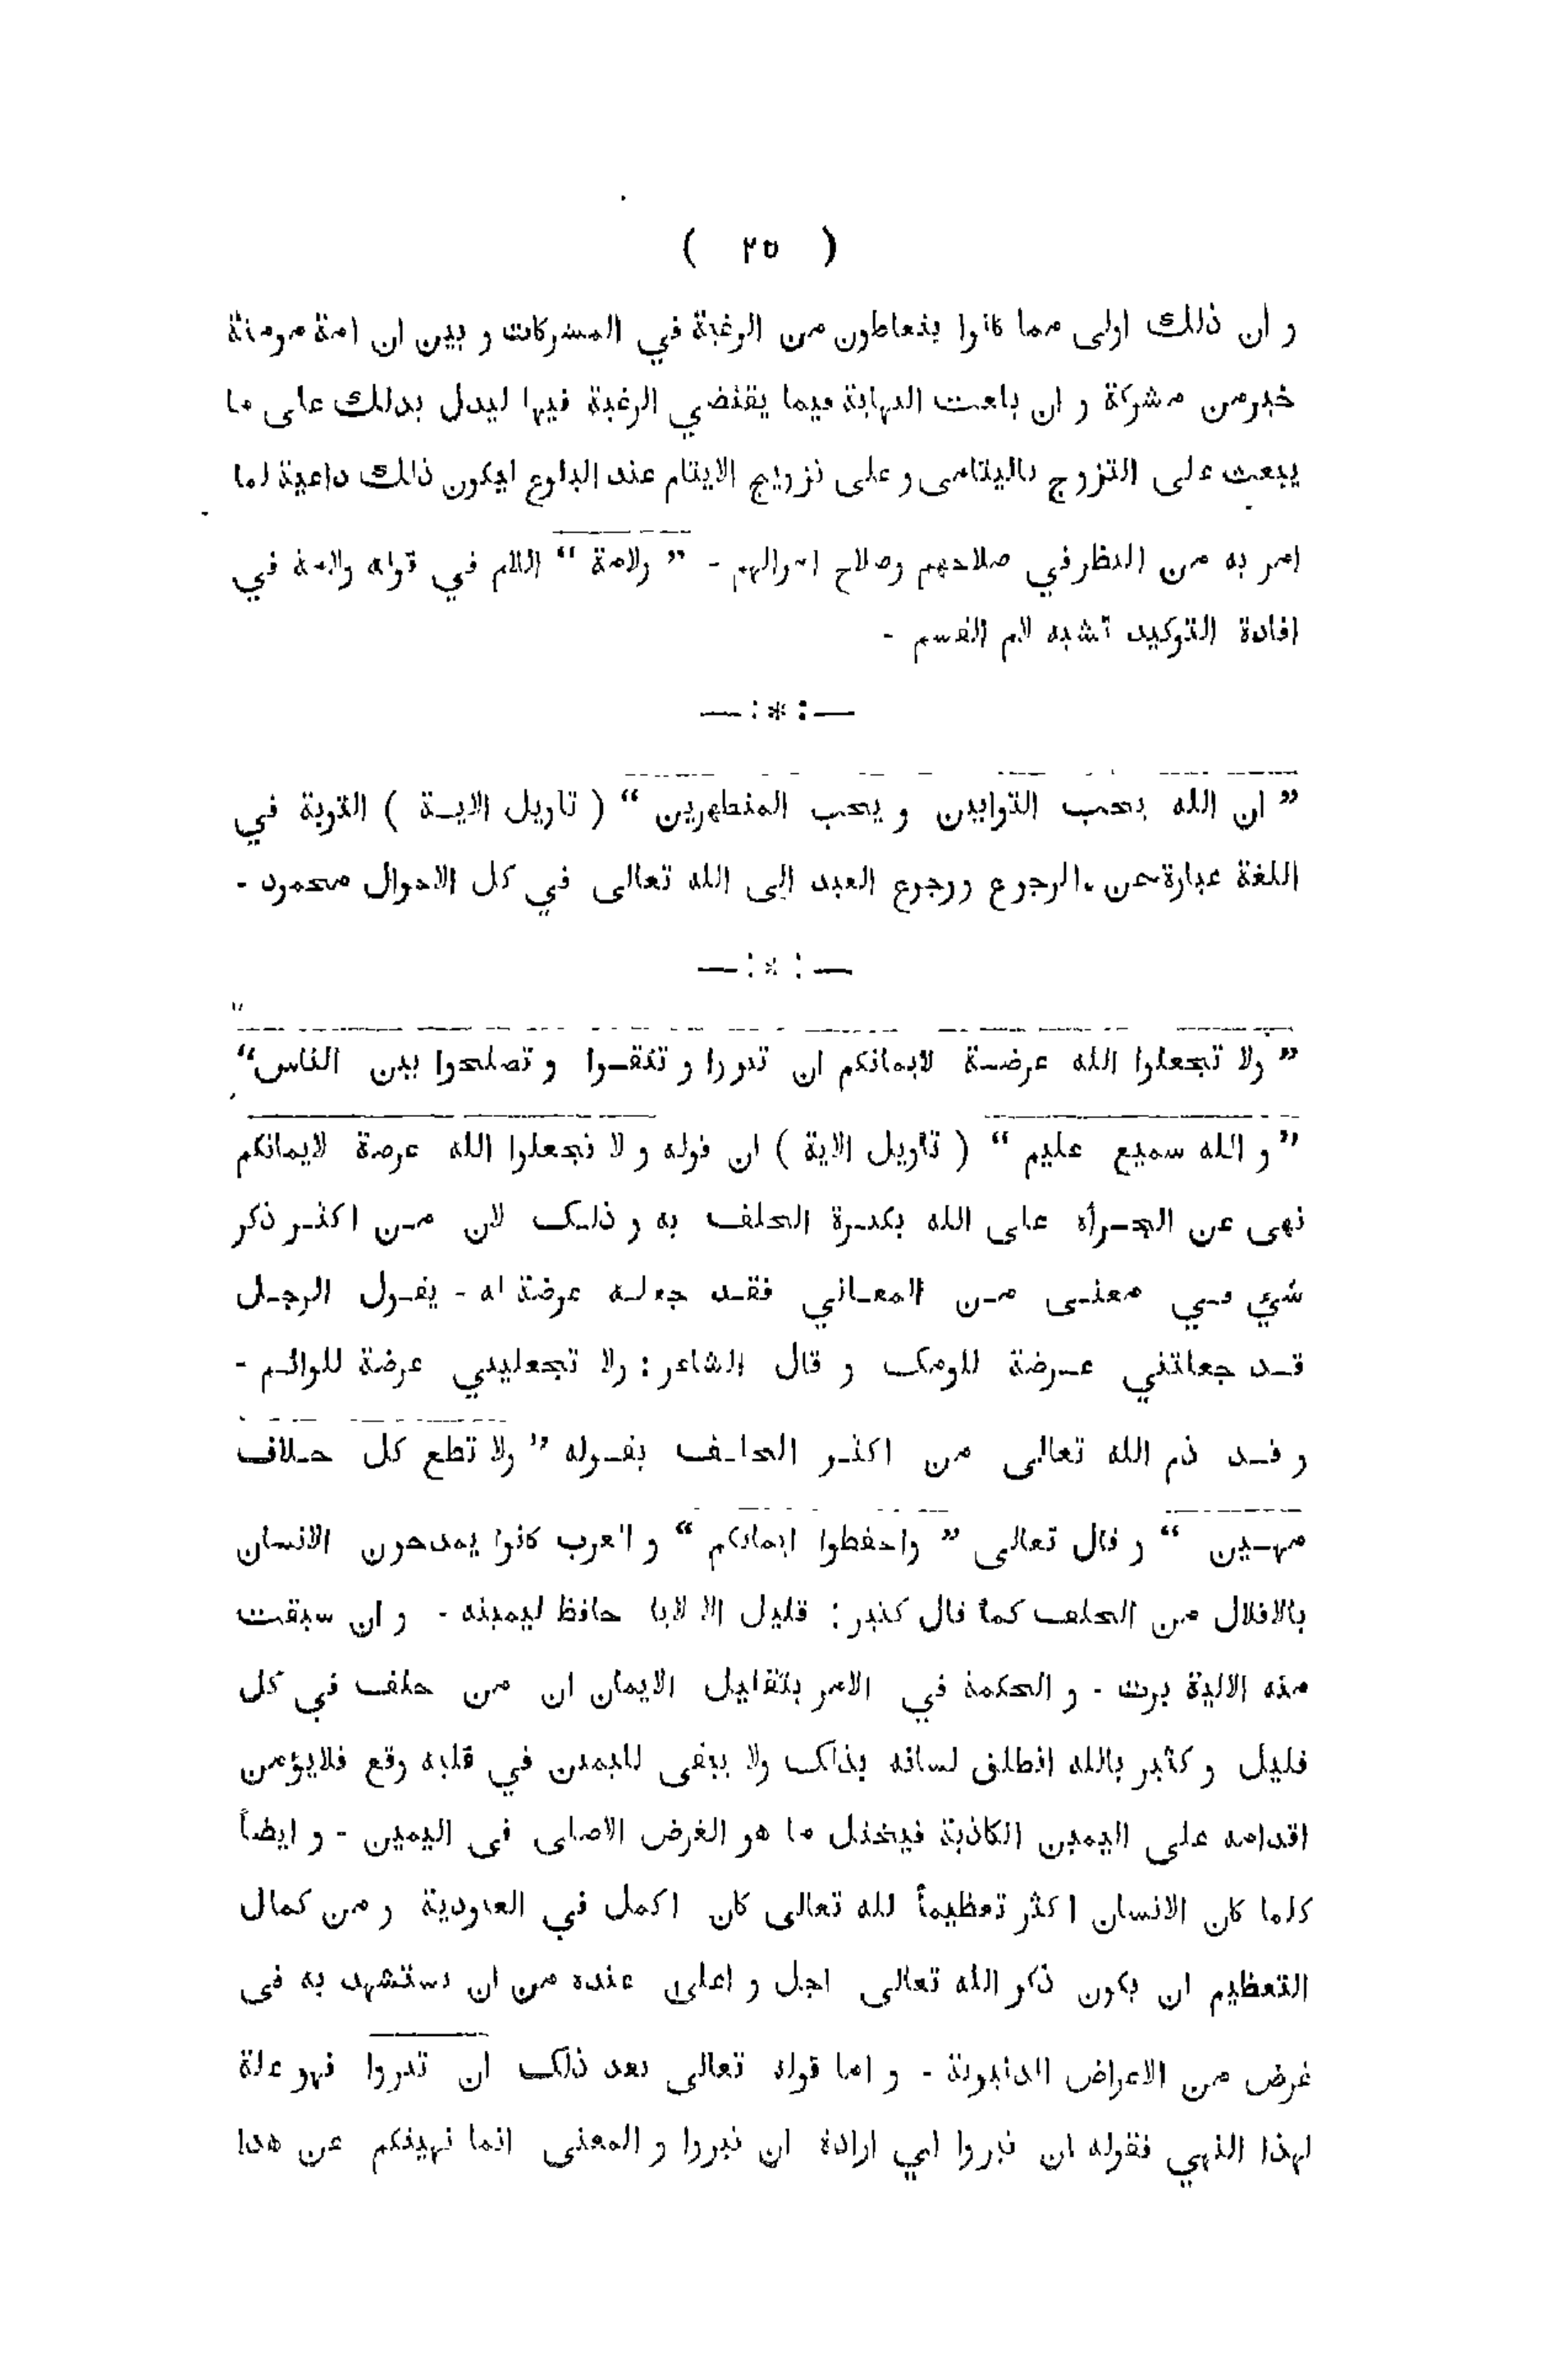 ( ٢٥ )
و ان ذلك اولى مما كانوا يتعاطون من الرغبة في المشركات و بين ان امة مومنة
خير من مشركة و ان بلغت النهاية فيما يقتضي الرغبة فيها ليدل بذلك على ما
يبعث على التزوج باليتامى و على تزويج الايتام عند البلوغ ليكون ذلك داعية لما
امر به من النظر في صلاحهم وصلاح اموالهم - ” ولامة “ اللام في قوله ولامة في
افادة التوكيد تشبه لام القسم -
— : * : —
” ان الله يحب التوابين و يحب المتطهرين “ ( تاويل الايـة ) التوبة في
اللغة عبارة عن الرجوع ورجوع العبد الى الله تعالى في كل الاحوال محمود -
— : * : —
” ولا تجعلوا الله عرضـة لايمانكم ان تبروا و تتقـوا و تصلحوا بين الناس“
” و الله سميع عليم “ ( تاويل الاية ) ان قوله و لا تجعلوا الله عرضة لايمانكم
نهى عن الجـرأة على الله بكثـرة الحلف به و ذلـك لان مـن اكثـر ذكر
شي فـي معنـى مـن المعـاني فقـد جعلـه عرضة له - يقـول الرجـل
قـد جعلتني عـرضة للومك و قال الشاعر : ولا تجعليني عرضة للوائـم -
و قـد ذم الله تعالى من اكثـر الحلـف بقـوله ” ولا تطع كل حـلاف
مهـين “ و قال تعالى ” واحفظوا ايمانكم “ و العرب كانوا يمدحون الانسان
بالاقلال من الحلف كما قال كثير : قليل الا لايا حافظ ليمينه - و ان سبقت
منه الالية برت - و الحكمة في الامر بتقليل الايمان ان من حلف في كل
قليل و كثير بالله انطلق لسانه بذلك ولا يبقى لليمين في قلبه وقع فلايؤمن
اقدامه على اليمين الكاذبة فيختل ما هو الغرض الاصلى فى اليمين - و ايضاً
كلما كان الانسان اكثر تعظيماً لله تعالى كان اكمل في العبودية و من كمال
التعظيم ان يكون ذكر الله تعالى اجل و اعلى عنده من ان يستشهد به فى
غرض من الاعراض الدنيوية - و اما قوله تعالى بعد ذلك ان تبروا فهو علة
لهذا النهي فقوله ان تبروا اي ارادة ان تبروا و المعنى انما نهيتكم عن هذا